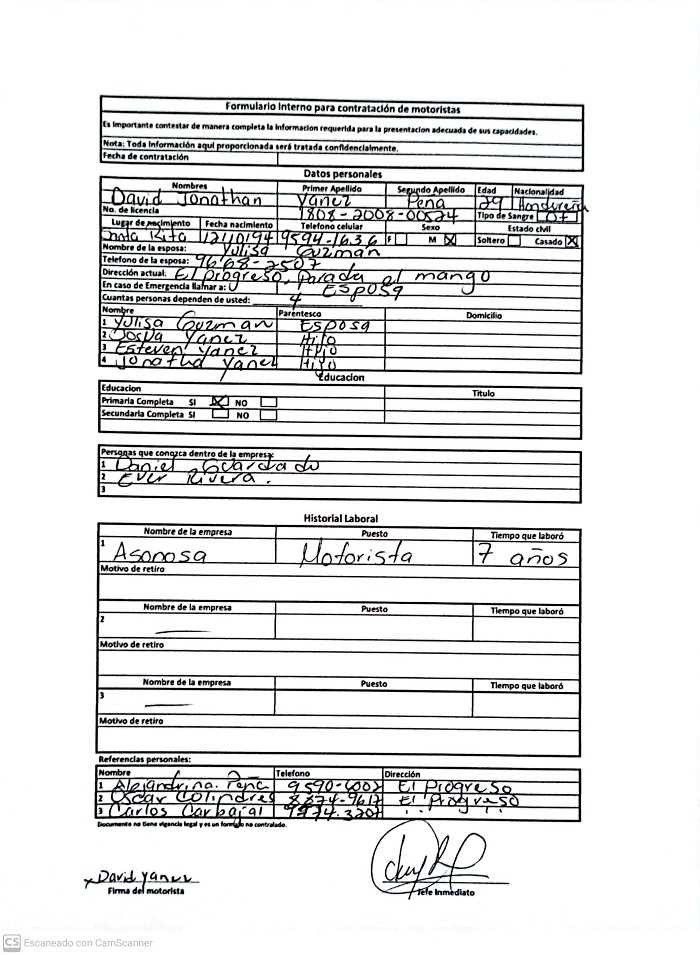 Formulario Interno para contratación de motoristas
Es Importante contestar de manera completa la Informacion requerida para la presentacion adecuada de sus capacidades.
Nota: Toda Información aquí proporcionada será tratada confidencialmente.
Fecha de contratación
Datos personales
Nombres Primer Apellido Segundo Apellido Edad Nacionalidad
David Jonathan Yanez Pena 29 Hondureña
No. de licencia 1808-2008-00524 Tipo de Sangre O+
Lugar de nacimiento Fecha nacimiento Telefono celular Sexo Estado civil
Santa Rita 12/10/94 9594-1636 F M X Soltero Casado X
Nombre de la esposa: Yulisa Guzman
Telefono de la esposa: 9668-2507
Dirección actual: El progreso, Parada el mango
En caso de Emergencia llamar a: Esposa
Cuantas personas dependen de usted: 4
Nombre Parentesco Domicilio
1 Yulisa Guzman Esposa
2 Yanez Hijo
3 Esteven Yanez Hijo
4 Jonatha Yanez Hijo
Educacion
Educacion Titulo
Primaria Completa SI X NO
Secundaria Completa SI NO
Personas que conozca dentro de la empresa:
1 Daniel Guardado
2 Ever Rivera.
3
Historial Laboral
Nombre de la empresa Puesto Tiempo que laboró
1 Asonosa Motorista 7 años
Motivo de retiro
Nombre de la empresa Puesto Tiempo que laboró
2
Motivo de retiro
Nombre de la empresa Puesto Tiempo que laboró
3
Motivo de retiro
Referencias personales:
Nombre Telefono Dirección
1 Alejandrina. Pena El Progreso
2 Oscar Colindres 8874-9617 El Progreso
3 Carlos Carbajal
Documento no tiene vigencia legal y es un formato no controlado.
David Yanez
Firma del motorista Jefe Inmediato
CS Escaneado con CamScanner